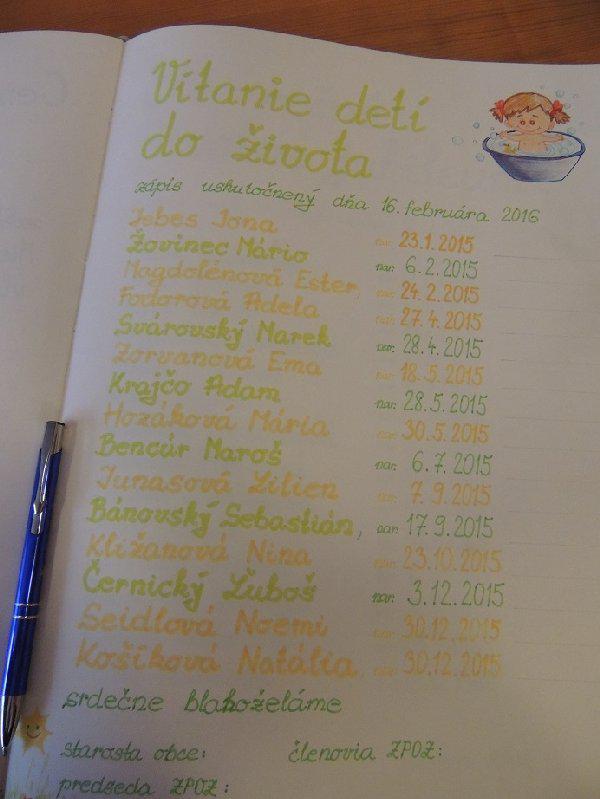 Vítanie detí
do života
zápis uskutočnený dňa 16. februára 2016
Jebes Jona nar. 23.1.2015
Žovinec Mário nar. 6.2.2015
Magdolénová Ester, nar. 24.2.2015
Fodorová Adela nar. 27.4.2015
Svárovský Marek nar. 28.4.2015
Zorvanová Ema nar. 18.5.2015
Krajčo Adam nar. 28.5.2015
Hozáková Mária nar. 30.5.2015
Bencúr Maroš nar. 6.7.2015
Junasová Lilien nar. 7.9.2015
Bánovský Sebastián, nar. 17.9.2015
Kližanová Nina nar. 23.10.2015
Černický Ľuboš nar. 3.12.2015
Seidlová Noemi nar. 30.12.2015
Košíková Natália, nar. 30.12.2015
srdečne blahoželáme
starosta obce: členovia ZPOZ:
predseda ZPOZ: